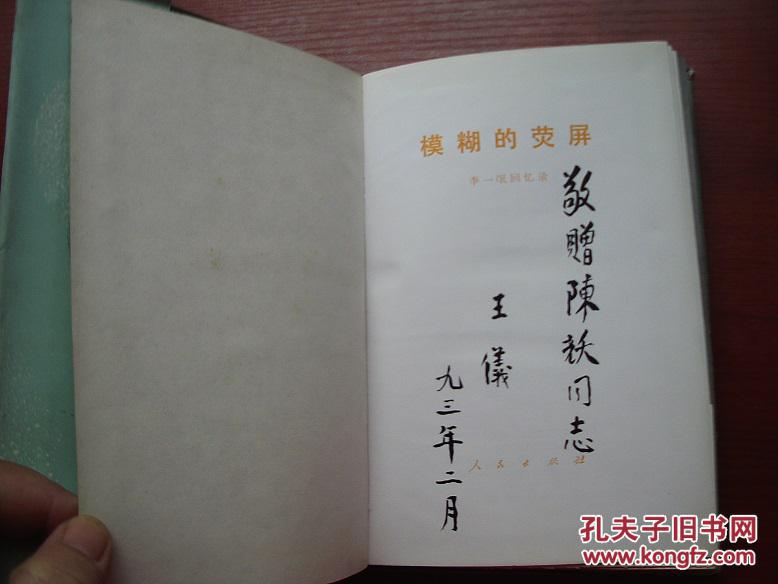 模糊的荧屏
李一氓回忆录
敬赠陳 同志
王儀
九三年二月
人民出版社
孔夫子旧书网
www.kongfz.com